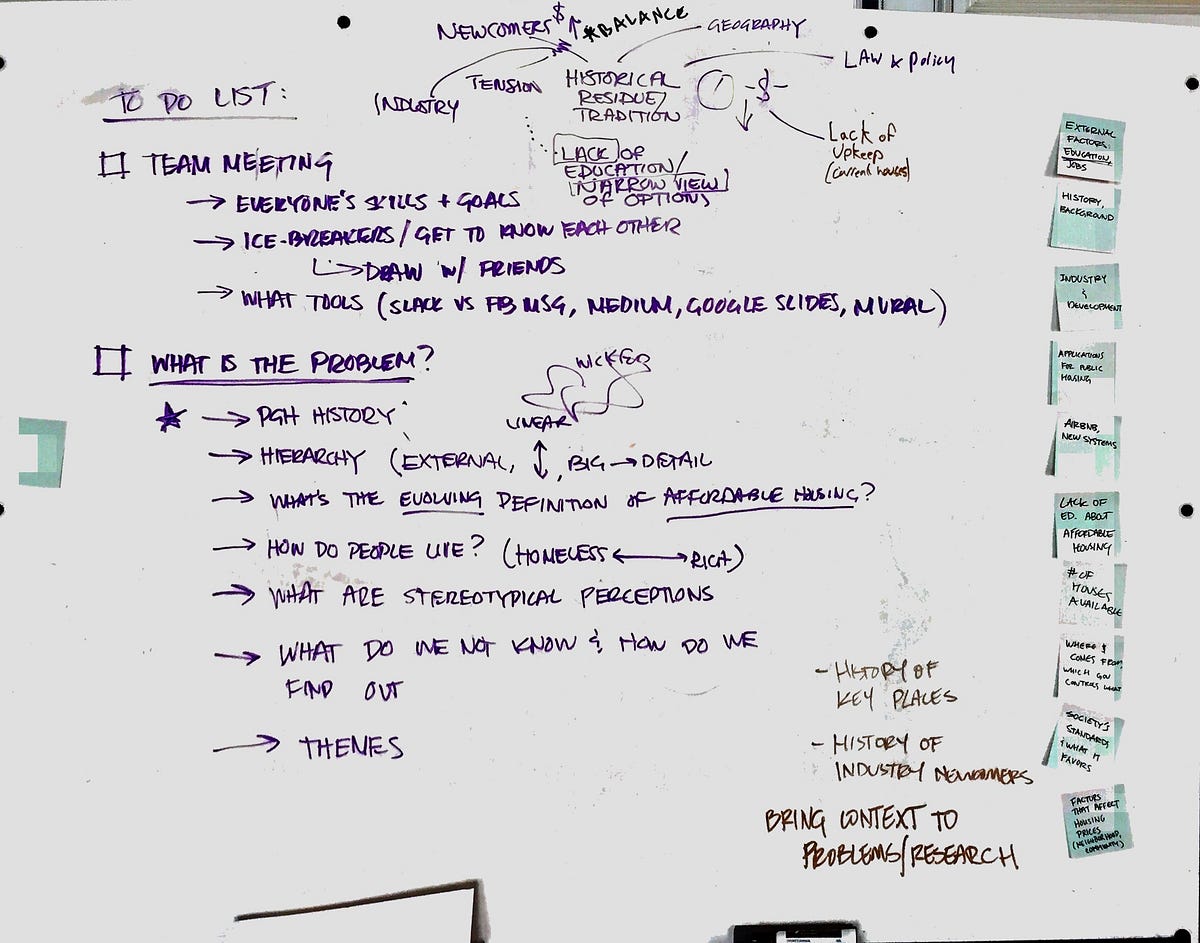 NEWCOMERS $ ↑
*BALANCE
GEOGRAPHY
LAW & Policy
TENSION
INDUSTRY
HISTORICAL
RESIDUE/
TRADITION
-$-
Lack of
Upkeep
(current houses)
LACK OF
EDUCATION/
NARROW VIEW
OF OPTIONS
TO DO LIST:
TEAM MEETING
→ EVERYONE'S SKILLS + GOALS
→ ICE-BREAKERS / GET TO KNOW EACH OTHER
↳ DRAW W/ FRIENDS
→ WHAT TOOLS (SLACK VS FB MSG, MEDIUM, GOOGLE SLIDES, MURAL)
WHAT IS THE PROBLEM?
WICKED
LINEAR
★ → PGH HISTORY
→ HIERARCHY (EXTERNAL, ↕, BIG → DETAIL
→ WHAT'S THE EVOLVING DEFINITION OF AFFORDABLE HOUSING?
→ HOW DO PEOPLE LIVE? (HOMELESS ↔ RICH)
→ WHAT ARE STEREOTYPICAL PERCEPTIONS
→ WHAT DO WE NOT KNOW & HOW DO WE
FIND OUT
→ THEMES
- HISTORY OF
KEY PLACES
- HISTORY OF
INDUSTRY NEWCOMERS
BRING CONTEXT TO
PROBLEMS/RESEARCH
EXTERNAL
FACTORS:
EDUCATION,
JOBS
HISTORY,
BACKGROUND
INDUSTRY
&
DEVELOPMENT
APPLICATIONS
FOR PUBLIC
HOUSING
AIRBNB,
NEW SYSTEMS
LACK OF
ED. ABOUT
AFFORDABLE
HOUSING
# OF
HOUSES
AVAILABLE
WHERE $
COMES FROM
WHICH GOV
CONTROLS WHAT
SOCIETY'S
STANDARDS
& WHAT IT
FAVORS
FACTORS
THAT AFFECT
HOUSING
PRICES
(NEIGHBORHOOD,
COMMUNITY)